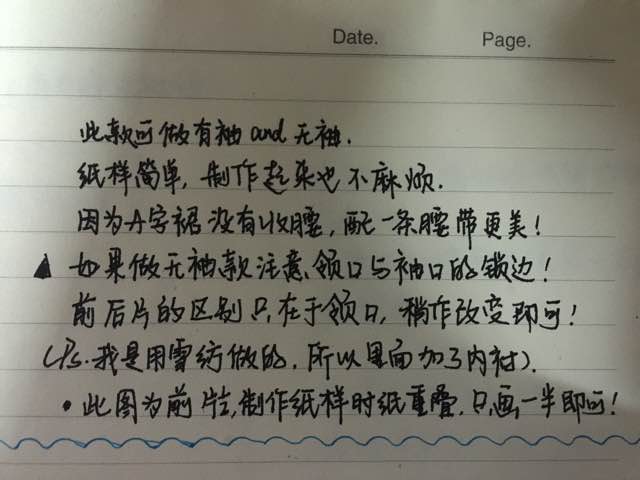 Date. Page.
此款可做有袖and无袖.
纸样简单, 制作起来也不麻烦.
因为A字裙没有收腰, 配一条腰带更美!
▲ 如果做无袖款注意领口与袖口的锁边!
前后片的区别只在于领口, 稍作改变即可!
(Ps.我是用雪纺做的, 所以里面加了内衬).
• 此图为前片, 制作纸样时纸重叠, 只画一半即可!